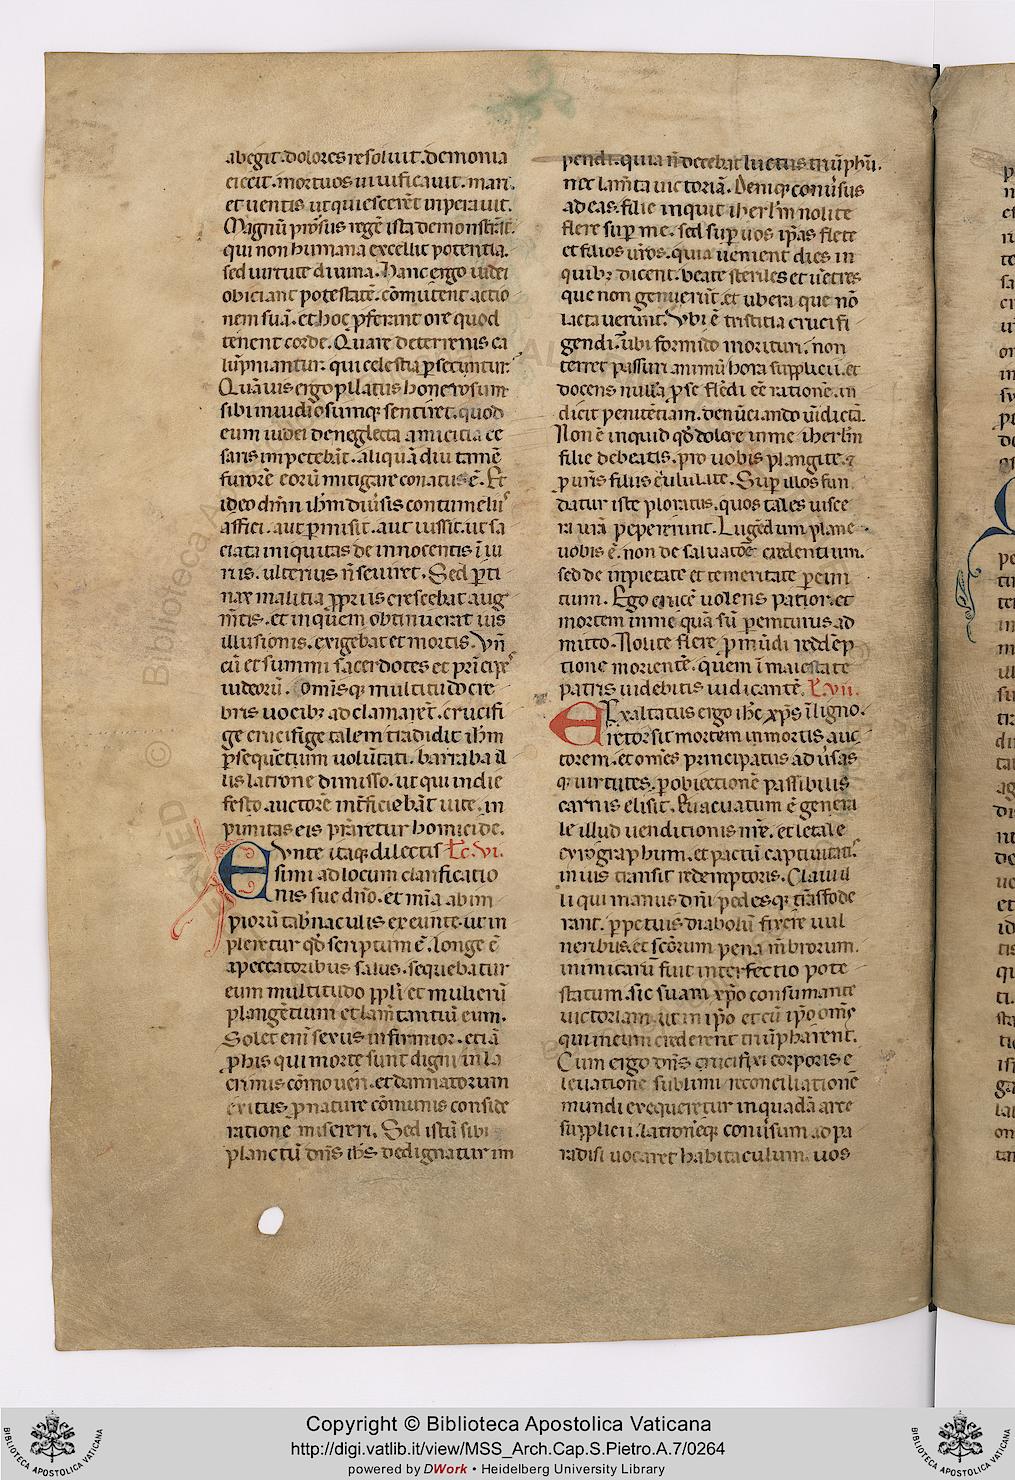 abegit. dolores resoluit. demonia
eiecit. mortuos uiuificauit. mari.
et uentis ut quiescerēt inperauit.
Magnū prorsus regē ista demonstrāt.
qui non humana excellit potentia.
sed uirtute diuina. Hanc ergo iudei
obiciant potestatē. cōmutent actio
nem suā. et hoc p̄ferant ore quod
tenent corde. Quare de terrenis ca
lūpniantur. qui celestia persecuntur.
Quāuis ergo pilatus honerosum
sibi inuidiosumq; sentiret. quod
eum iudei de neglecta amicicia ce
saris impetebāt. aliquādiu tamē
furorē eorū mitigare conatus ē. Et
ideo dn̄m ih̄m diuersis contumeliis
affici. aut permisit. aut iussit. ut sa
ciata iniquitas de innocentis iniu
riis. ulterius n̄ seuiret. Sed perti
nax malitia propriis crescebat aug
m̄tis. et in quem obtinuerat uis
illusionis. exigebat et mortis. Vn̄
cū et summi sacerdotes et prīcipes
iudeorū. omnisq; multitudo cre
bris uocib; adclamaret. crucifi
ge crucifige talem tradidit ih̄m
persequentium uolūtati. barraba il
lis latrone dimisso. ut qui in die
festo. auctore interficiebāt uite. in
punitas eis praretur homicide.
Eunte itaq; dilectis Lc. vi.
simi ad locum clarificatio
nis sue dn̄o. et in
piorū tabnaculis exeunte. ut in
pleretur qd̄ scriptum ē. Longe ē
a peccatoribus salus. sequebatur
eum multitudo ppl̄i et mulierū
plangētium et lam̄tantiū eum.
Solet eni sexus infirmior. etiā
p̄ his qui morte sunt digni in la
crimis cōmoueri. et dannatorum
exitus pro nature cōmunis conside
ratione misereri. Sed istū sibi
planctū dn̄s ih̄s dedignatur im
pendi. quia n̄ decebat luctus triūphū.
nec lam̄ta uictoriā. Deniq; conuersus
ad eas. filie inquit ih̄erl̄m nolite
flere super me. sed super uos ip̄as flete
et filios ur̄os. quia uenient dies in
quib; dicent. beate steriles et uētres
que non genuerūt. et ubera que nō
lactauerūt. Vbi ē tristitia crucifi
gendi. ubi formido morituri. non
terret passuri animū hora supplicii. et
docens nullā pro se flēdi eē rationē. in
dicit penitētiam. denūciando uindictā.
Non ē inquid qd̄ dolore in me ih̄erl̄m
filie debeatis. pro uobis plangite. et
pro ur̄is filiis eiulate. Super illos fun
datur iste ploratus. quos tales uisce
ra ur̄a pepererunt. Lugēdum plane
uobis ē. non de saluatiōe credentium.
sed de inpietate et temeritate pereun
tium. Ego crucē uolens patior. et
mortem in me quā sū perempturus ad
mitto. Nolite flere pro mūdi redēp
tione morientē. quem ī maiestate
patris uidebitis iudicantē. Lc. vii.
Exaltatus ergo ih̄c xp̄s ī ligno.
retorsit mortem in mortis auc
torem. et omnes principatus aduersas
q; uirtutes. per obiectionē passibilis
carnis elisit. Euacuatum ē genera
le illud uenditionis nr̄e. et letale
cyrographum. et pactū captiuitatis
in ius transit redemptoris. Claui il
li qui manus dn̄i pedesq; transfode
rant. perpetuis diabolū fixere uul
neribus. et sc̄orum pena mēbrorum.
inimicarū fuit interfectio pote
statum. sic suam xp̄o consumante
uictoriam. ut in ip̄o et cū ip̄o omēs
qui in eum crederent triūpharent.
Cum ergo dn̄s crucifixi corporis e
leuatione sublimi reconciliationē
mundi exequeretur in quadā arce
supplicii. latronēq; conuersum ad pa
radisi uocaret habitaculum. uos
Copyright © Biblioteca Apostolica Vaticana
http://digi.vatlib.it/view/MSS_Arch.Cap.S.Pietro.A.7/0264
powered by DWork • Heidelberg University Library